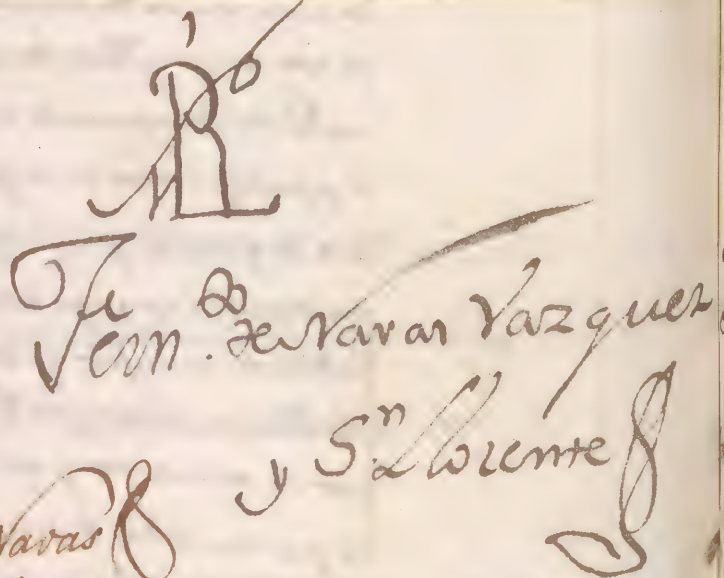 Fern.do de Navas Vazquez
y S.n Llorente
Navas